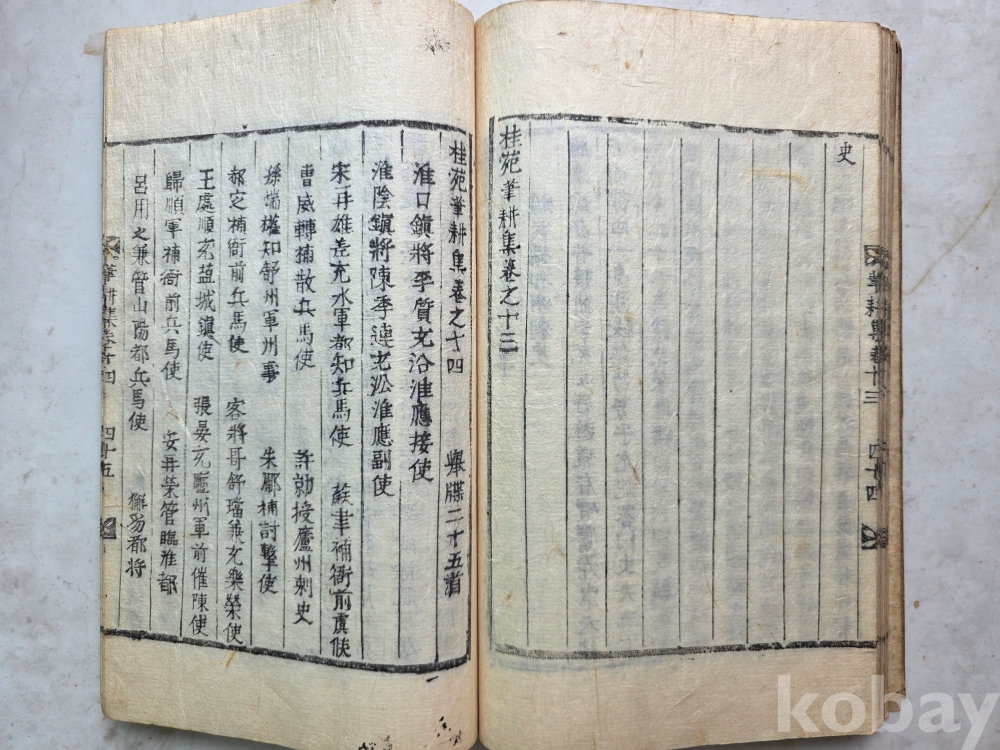 史
桂苑筆耕集卷之十三
筆耕集卷十三 四十四
桂苑筆耕集卷之十四 擧牒二十五首
淮口鎭將李質充沿淮應接使
淮陰鎭將陳季連充沿淮應副使
宋再雄差充水軍都知兵馬使 蘇聿補衙前虞候
曹威轉補散兵馬使 許勍授廬州刺史
孫端權知舒州軍州事 朱鄘補討擊使
郝定補衙前兵馬使 客將哥舒璫兼充樂營使
王處順充鹽城鎭使 張晏充廬州軍前催陳使
歸順軍補衙前兵馬使 安再榮管臨淮都
呂用之兼管山陽都兵馬使 都將
筆耕集卷十四 四十五
kobay